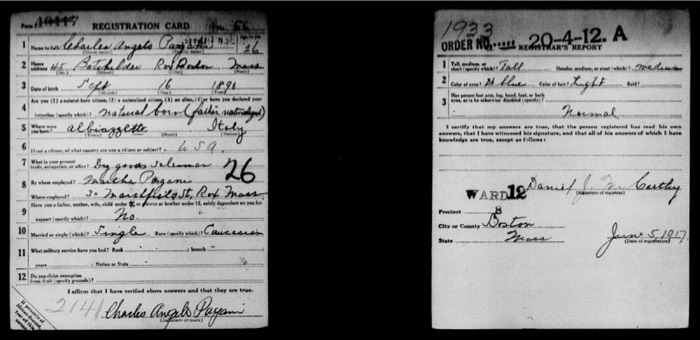 REGISTRATION CARD
1 Name in full Charles Angelo Pagani 26
2 Home address 45 Batchelder Rox Boston Mass
3 Date of birth Sept 16 1890
4 Are you (1) a natural born citizen, (2) a naturalized citizen, (3) an alien, (4) or have you declared your
intention (specify which)? natural born (father naturalized)
5 Where were you born? Italy
6 If not a citizen, of what country are you a citizen or subject? USA
7 What is your present trade, occupation, or office? Dry goods salesman 26
8 By whom employed? Martha Pagani
Where employed? Marshfield St, Rox Mass
9 Have you a father, mother, wife, child under 12, or a sister or brother under 12, solely dependent on you for
support (specify which)? No.
10 Married or single (which)? Single Race (specify which)? Caucasian
11 What military service have you had? Rank branch
years Nation or State
12 Do you claim exemption from draft (specify grounds)?
I affirm that I have verified above answers and that they are true.
2141 Charles Angelo Pagani
(Signature or mark)
1933
ORDER NO. 20-4-12. A
REGISTRAR'S REPORT
1 Tall, medium, or short (specify which)? Tall Slender, medium, or stout (which)? medium
2 Color of eyes? blue Color of hair? Light Bald?
3 Has person lost arm, leg, hand, foot, or both eyes, or is he otherwise disabled (specify)?
Normal
I certify that my answers are true, that the person registered has read his own
answers, that I have witnessed his signature, and that all of his answers of which I have
knowledge are true, except as follows:
Daniel J. McCarthy
(Signature of registrar)
WARD 12
Precinct 8
City or County Boston
State Mass
June 5, 1917
(Date of registration)